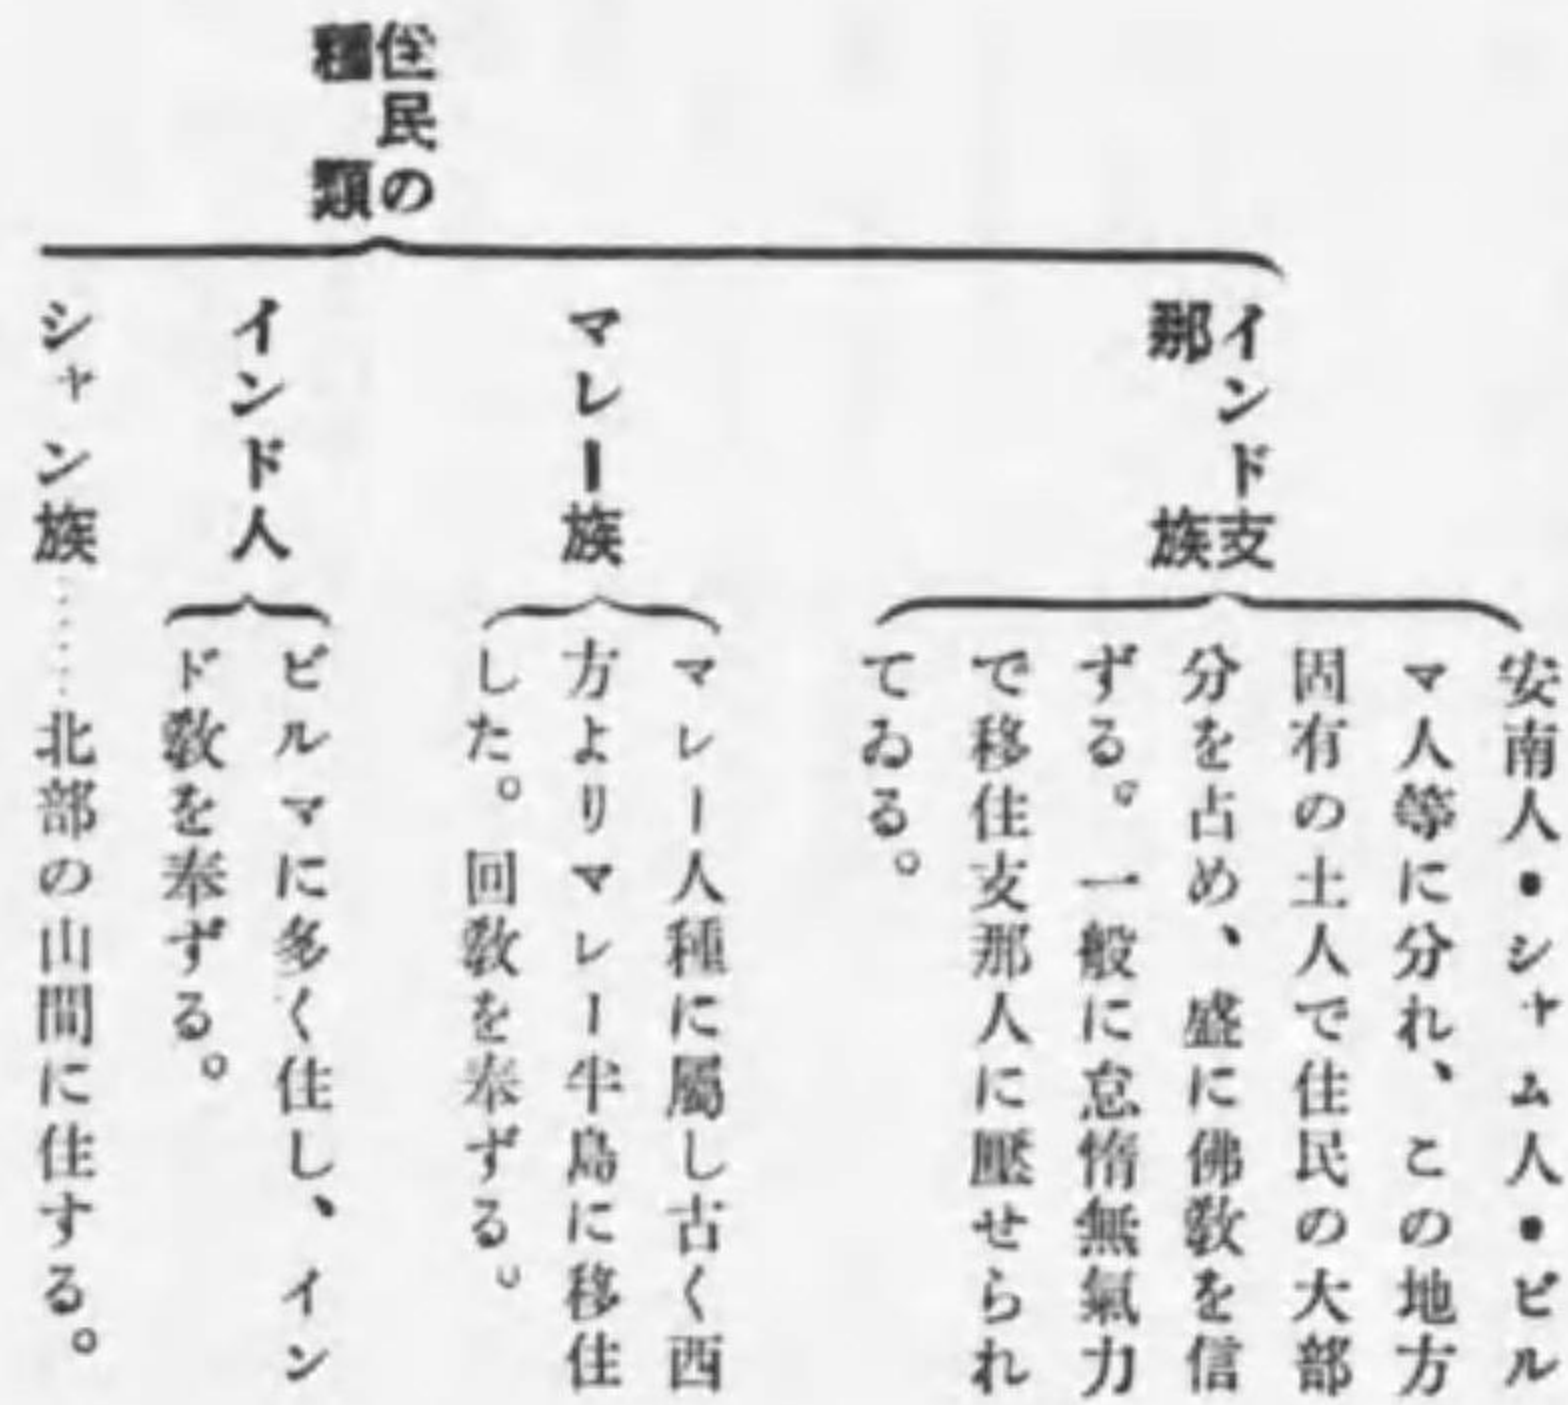 住民の
種類
インド支
那族
安南人・シャム人・ビル
マ人等に分れ、この地方
固有の土人で住民の大部
分を占め、盛に佛敎を信
ずる。一般に怠惰無氣力
で移住支那人に壓せられ
てゐる。
マレー族
マレー人種に屬し古く西
方よりマレー半島に移住
した。回敎を奉ずる。
インド人
ビルマに多く住し、イン
ド敎を奉ずる。
シャン族……北部の山間に住する。